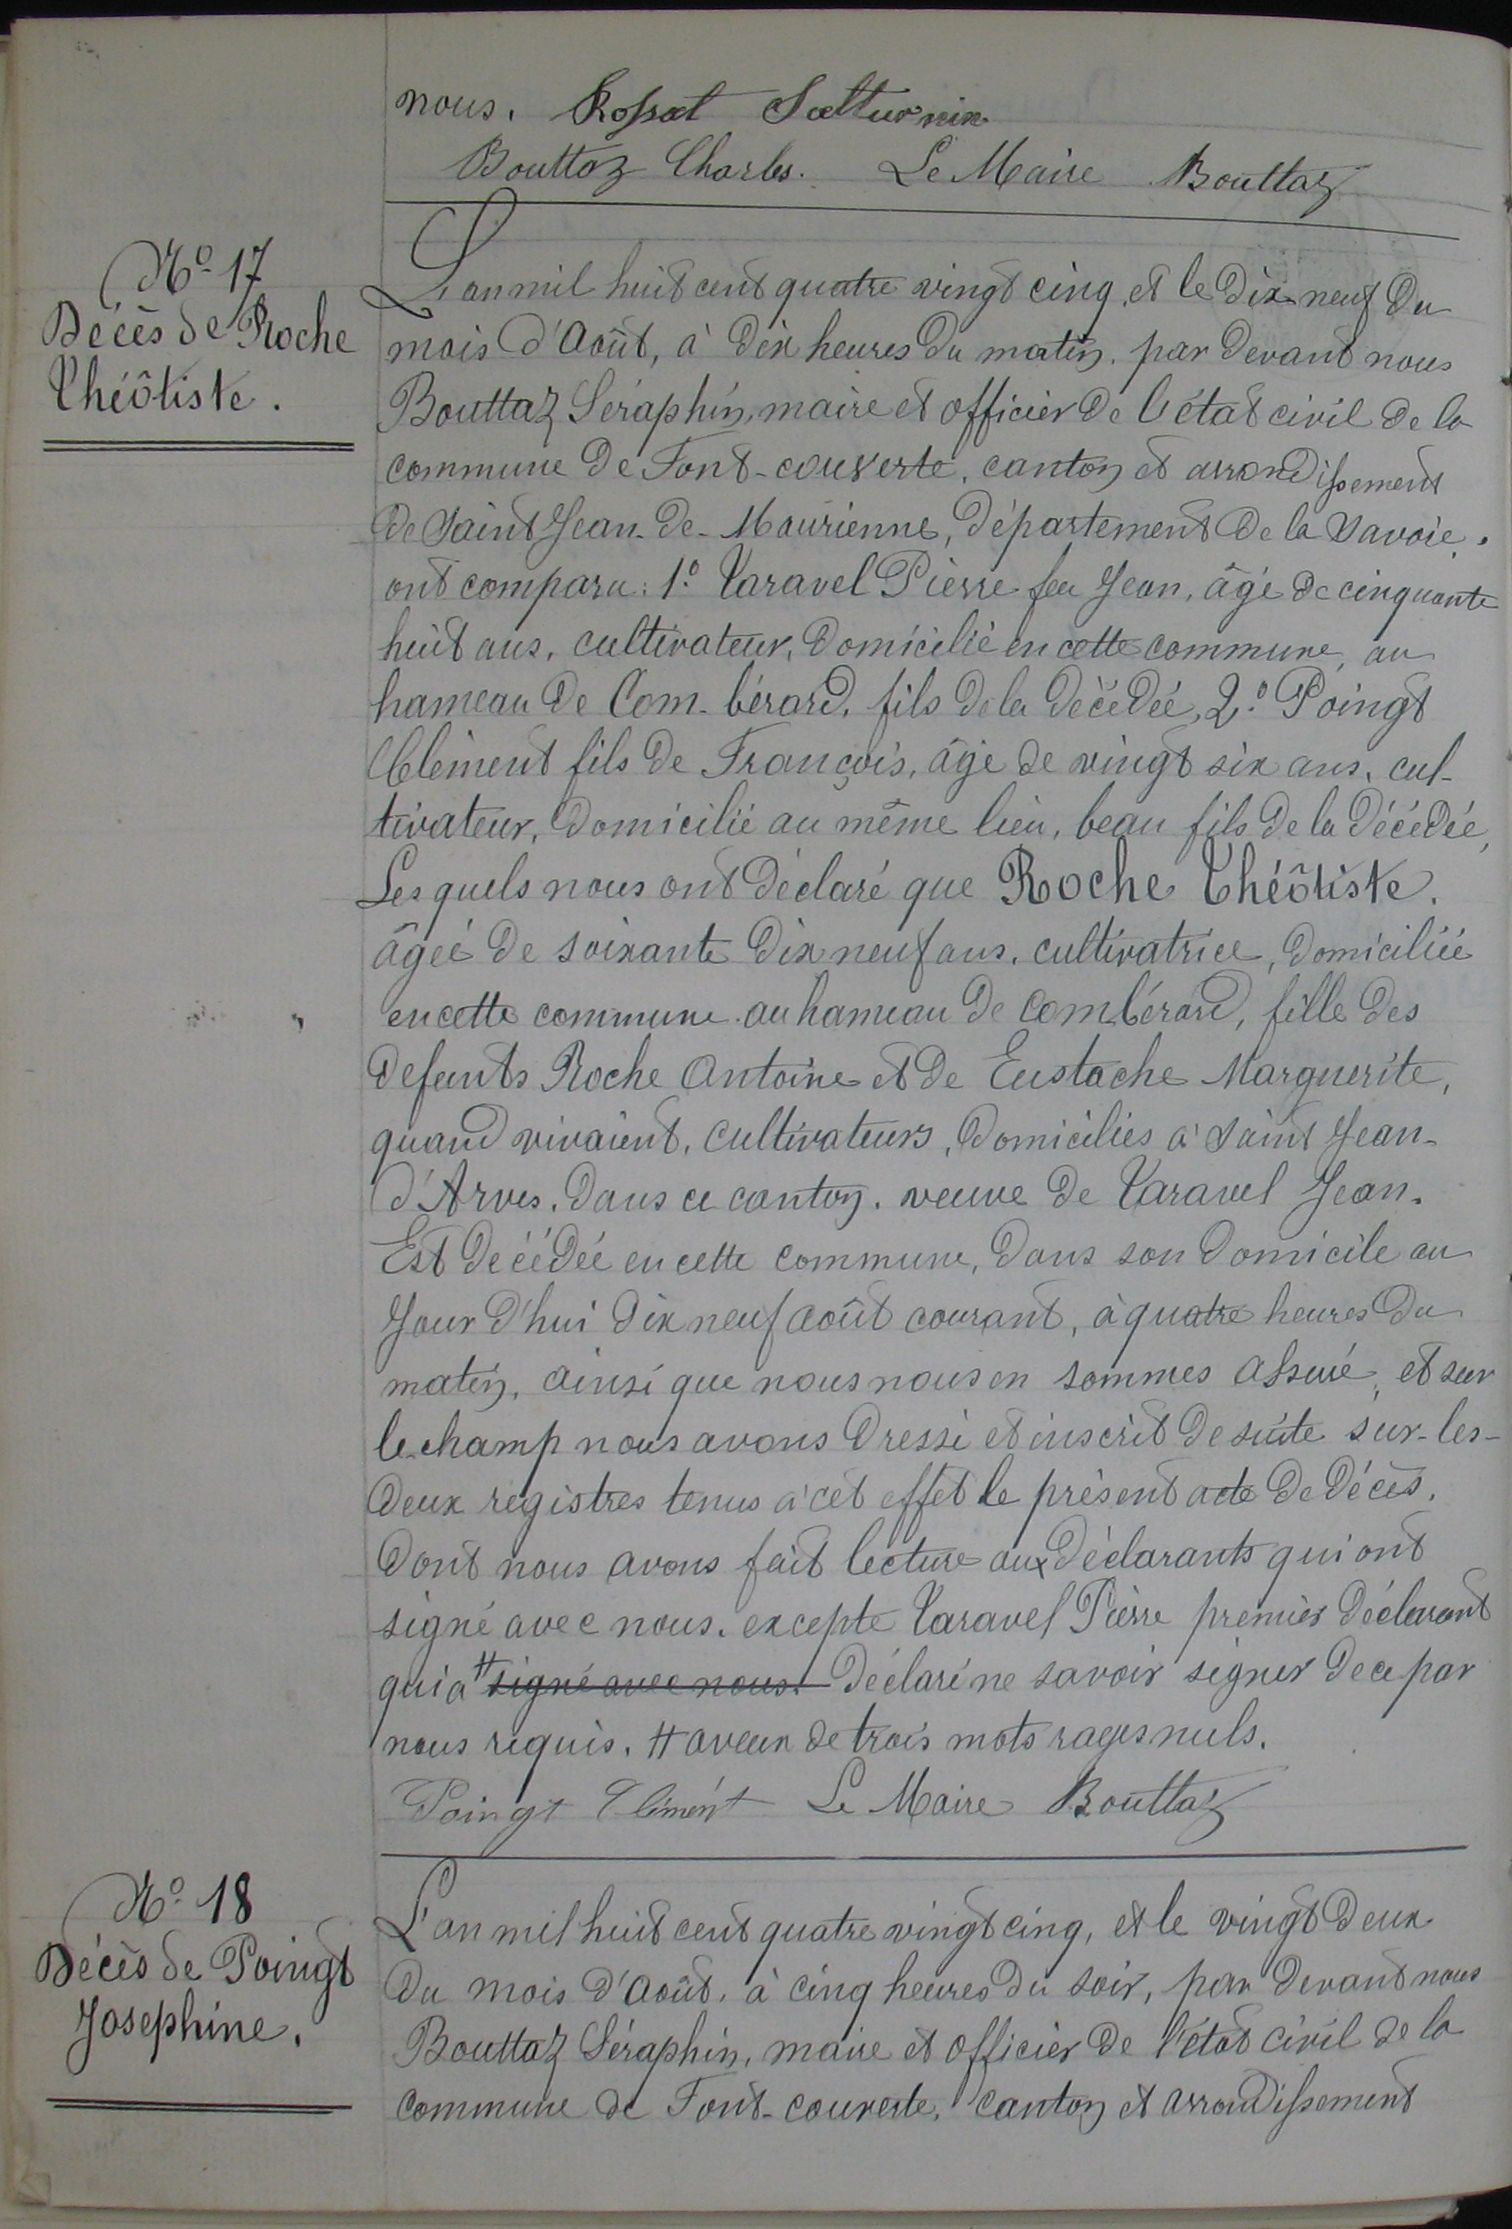 nous. Rossat Satturnin
Bouttaz Charles. Le Maire Bouttaz
N° 17
Décès de Roche
Théôtiste.
L'an mil huit cent quatre vingt cinq, et le dix neuf du
mois d'Août, à dix heures du matin. par devant nous
Bouttaz Séraphin, maire et officier de l'état civil de la
commune de Font-couverte, canton et arrondissement
de Saint Jean-de-Maurienne, département de la Savoie.
ont comparu: 1° Taravel Pierre feu Jean, âgé de cinquante
huit ans, cultivateur, domicilié en cette commune, au
hameau de Com-bérard, fils de la décédée, 2° Poingt
Clément fils de François, âgé de vingt six ans, cul-
tivateur, domicilié au même lieu, beau fils de la décédée,
Les quels nous ont déclaré que Roche Théôtiste.
âgée de soixante dix neuf ans, cultivatrice, domiciliée
en cette commune au hameau de Combérard, fille des
defunts Roche Antoine et de Eustache Marguerite,
quand vivaient, cultivateurs, domiciliés à Saint Jean-
d'Arves, dans ce canton. veuve de Taravel Jean.
Est décédée en cette commune, dans son domicile au
Jour d'hui dix neuf août courant, à quatre heures du
matin, ainsi que nous nous en sommes assuré, et sur
le champ nous avons dressé et inscrit de suite sur-les-
deux registres tenus à cet effet le présent acte de décès.
dont nous avons fait lecture aux déclarants qui ont
signé avec nous. excepte Taravel Pierre premier déclarant
qui a # signé avec nous. déclaré ne savoir signer de ce par
nous requis. # aveux de trois mots rayés nuls.
Poingt Clément Le Maire Bouttaz
N° 18
Décès de Poingt
Josephine.
L'an mil huit cent quatre vingt cinq, et le vingt deux
du mois d'Août, à cinq heures du soir, par devant nous
Bouttaz Séraphin, maire et officier de l'état civil de la
commune de Font-couverte, canton et arrondissement